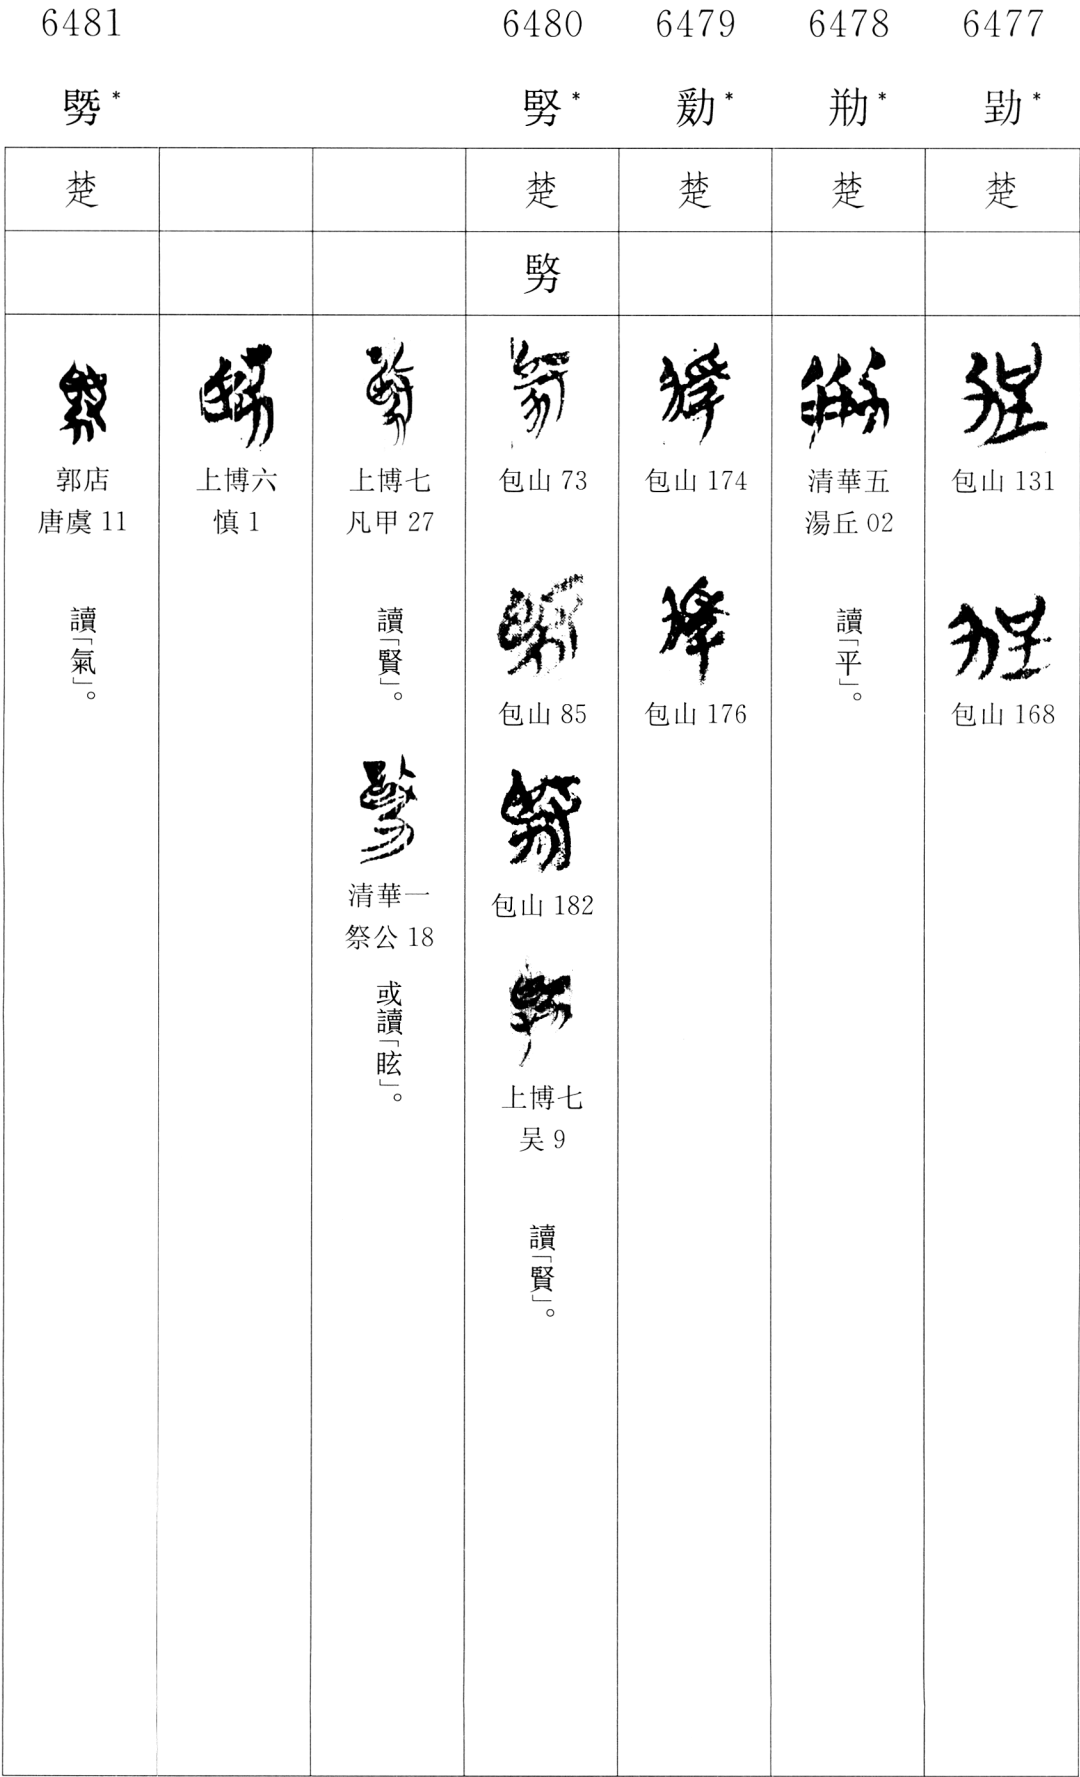 6477
楚
包山 131
包山 168
6478
楚
清華五
湯丘 02
讀「平」。
6479
楚
包山 174
包山 176
6480
楚
包山 73
包山 85
包山 182
上博七
吴 9
讀「賢」。
上博七
凡甲 27
讀「賢」。
清華一
祭公 18
或讀「眩」。
上博六
慎 1
6481
楚
郭店
唐虞 11
讀「氣」。